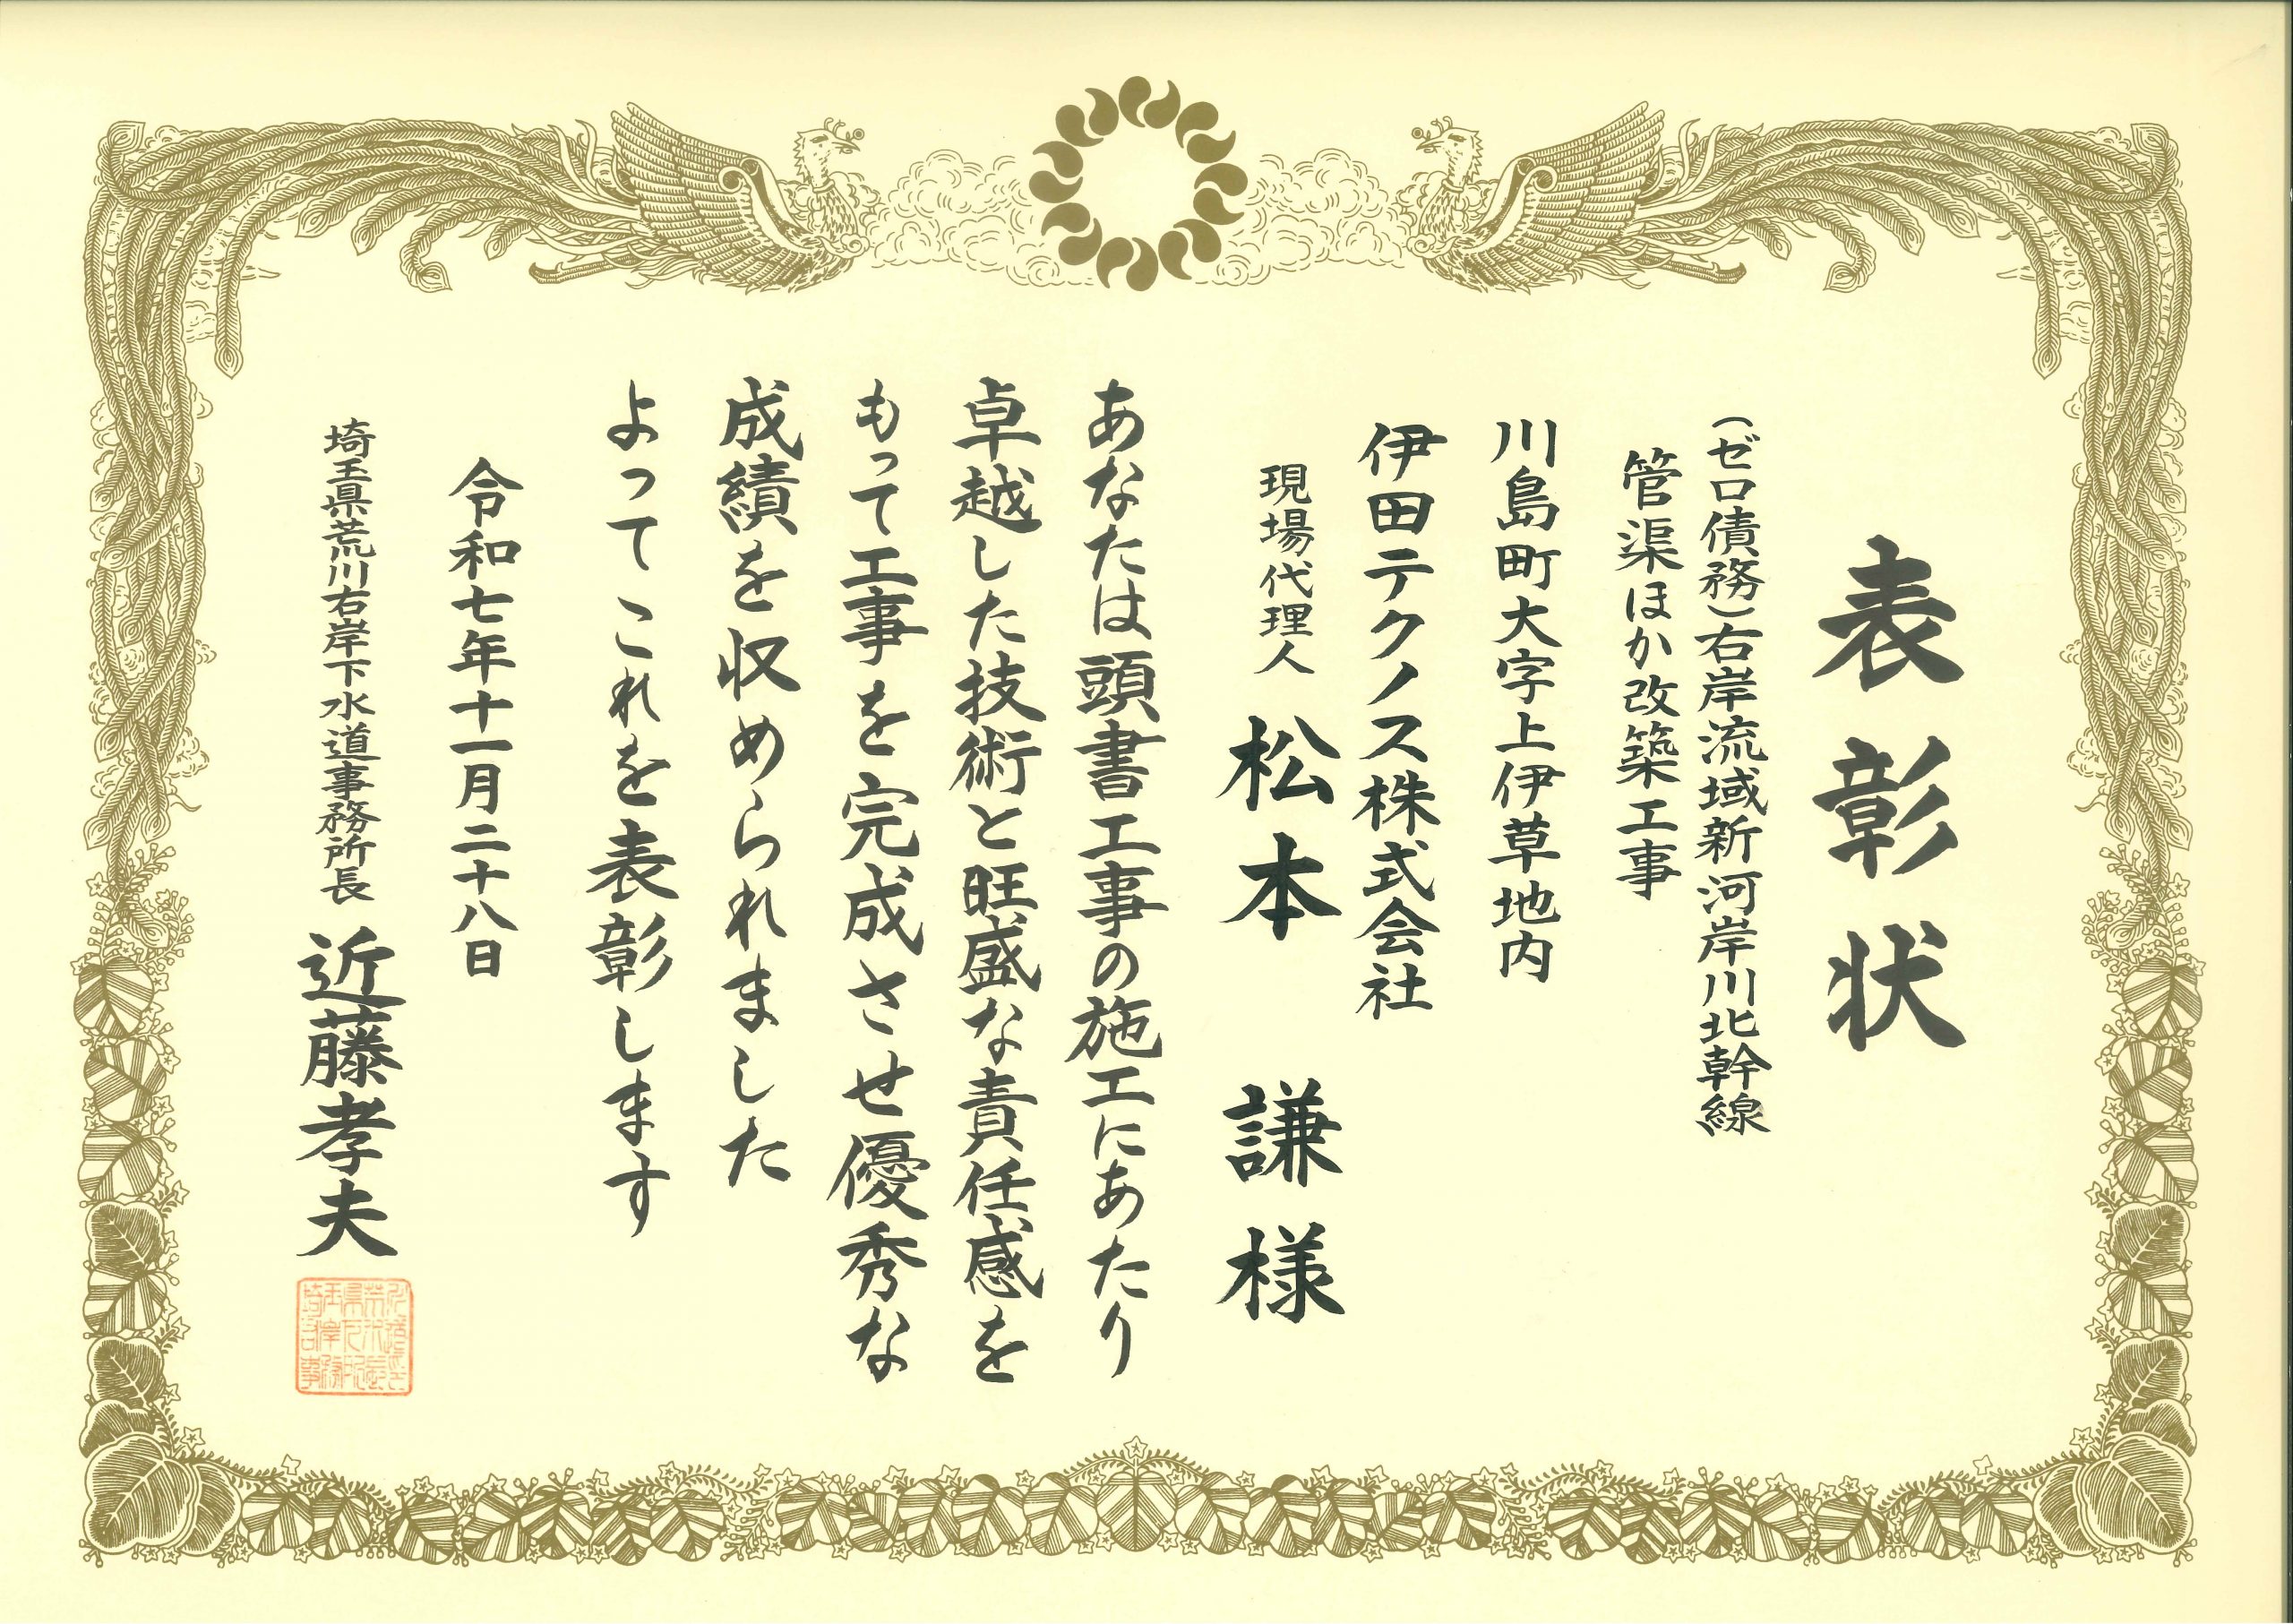 表彰状
（ゼロ債務）右岸流域新河岸川北幹線
管渠ほか改築工事
川島町大字上伊草地内
伊田テクノス株式会社
現場代理人 松本 謙様
あなたは頭書工事の施工にあたり
卓越した技術と旺盛な責任感を
もって工事を完成させ優秀な
成績を収められました
よってこれを表彰します
令和七年十一月二十八日
埼玉県荒川右岸下水道事務所長 近藤孝夫